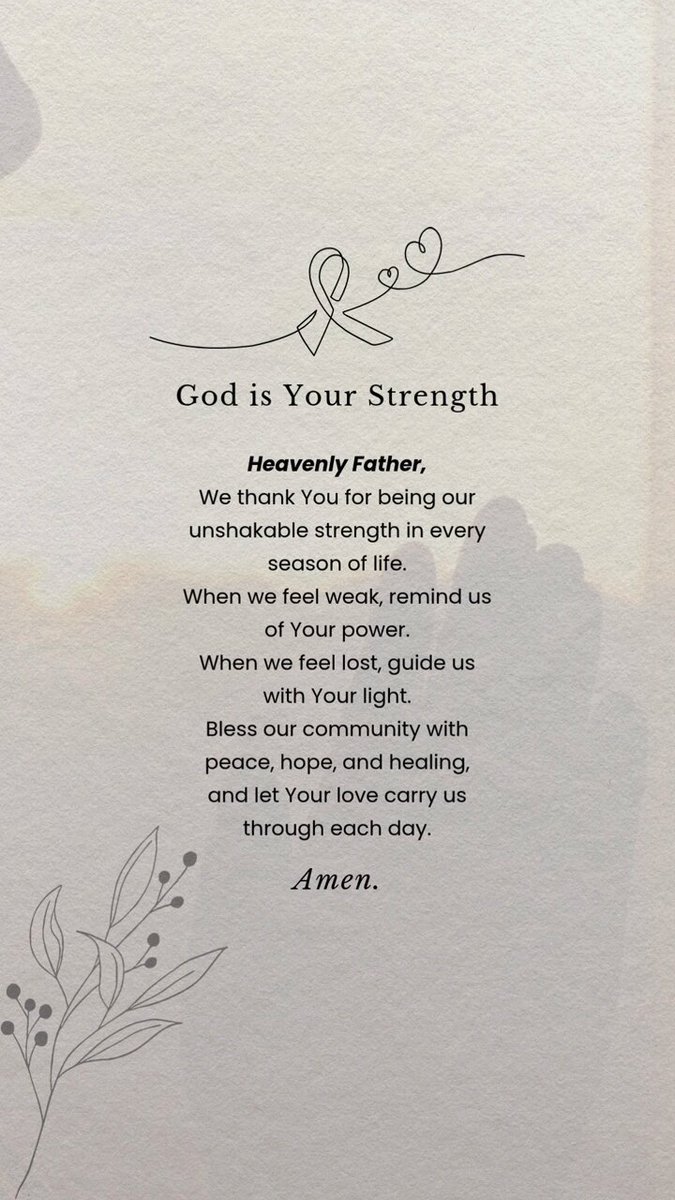 God is Your Strength
Heavenly Father,
We thank You for being our
unshakable strength in every
season of life.
When we feel weak, remind us
of Your power.
When we feel lost, guide us
with Your light.
Bless our community with
peace, hope, and healing,
and let Your love carry us
through each day.
Amen.